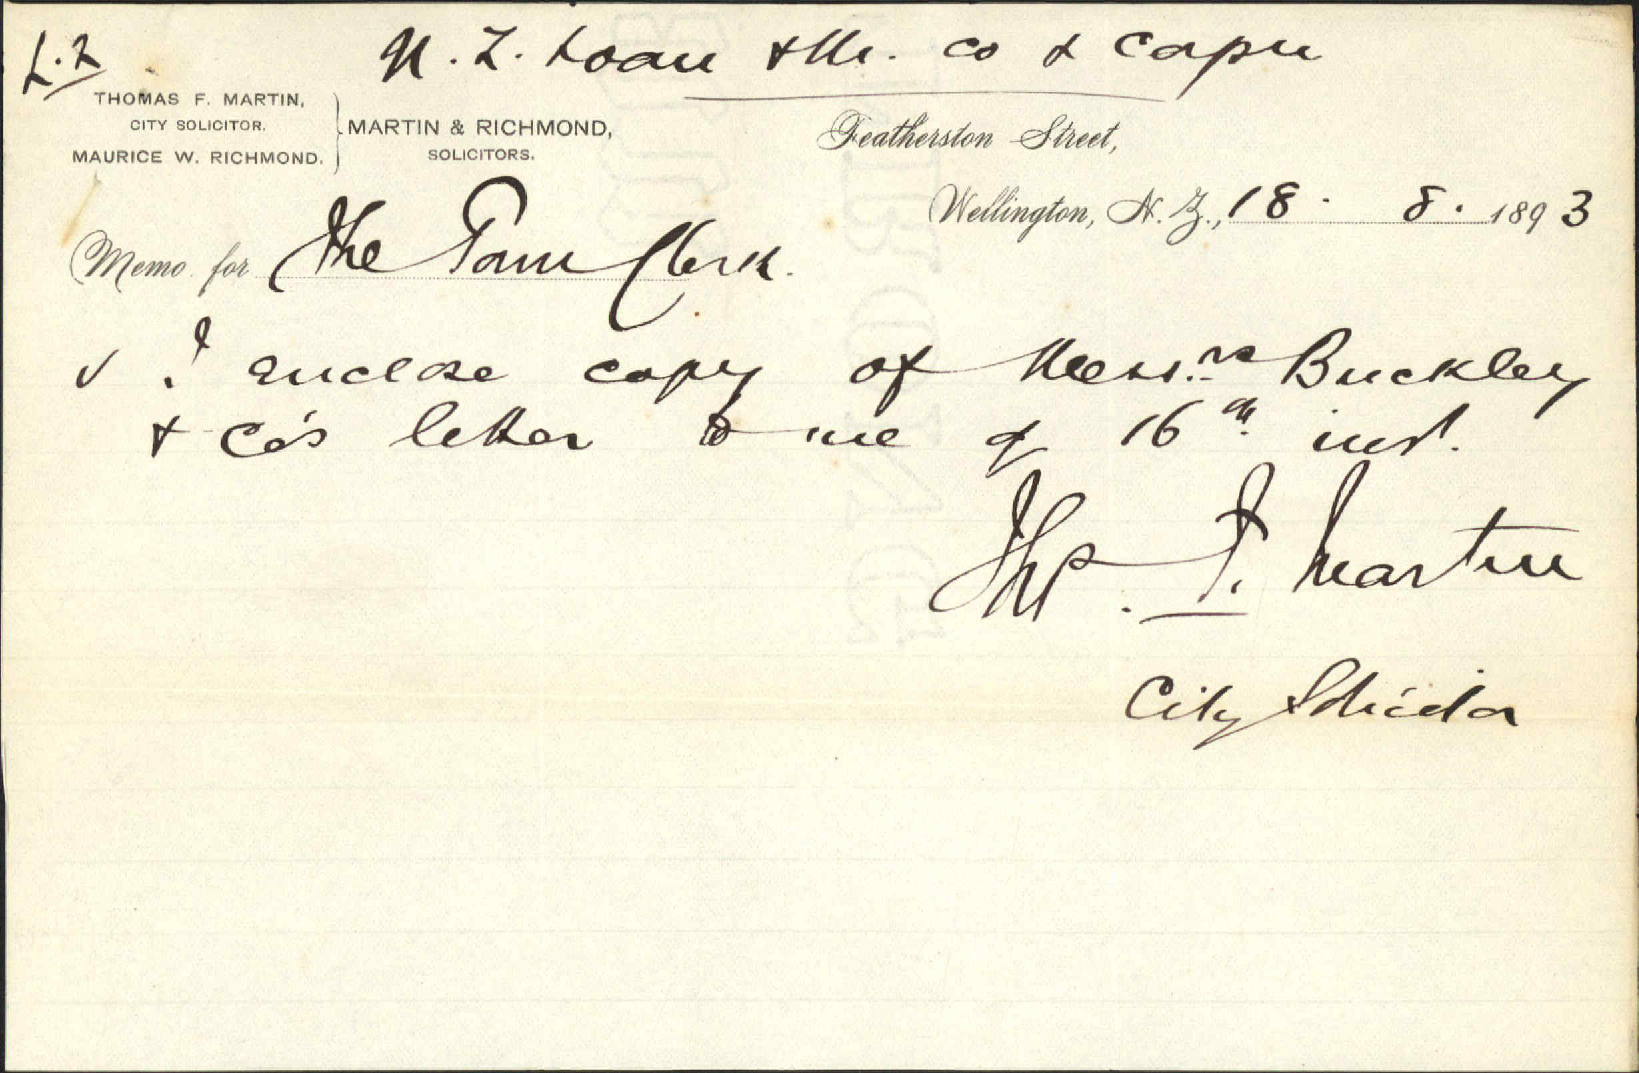 L.2
N. Z. Loan & M. Co & Corpn
THOMAS F. MARTIN,
CITY SOLICITOR.
MAURICE W. RICHMOND.
MARTIN & RICHMOND,
SOLICITORS.
Featherston Street,
Wellington, N. Z., 18 . 8 . 1893
Memo. for The Town Clerk.
I enclose copy of Messrs. Buckley
& Co's letter to me of 16th inst.
Thos. F. Martin
City Solicitor